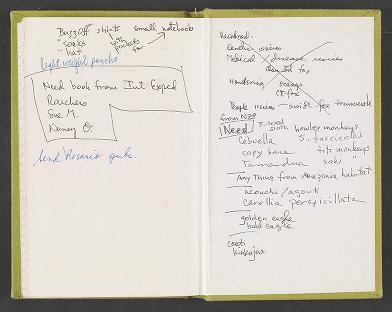 Buzz Off shirts small notebook
"socks with pockets for
"hat
light weight poncho
Need book from Int Exped
Ranchero
Sue M.
Nancy O.
Send Rosario pubs.
issues
medical disease issues
fox
wondering orange
People issues swift fox
from NZP
Need 2-toed sloth howler monkeys
Cebuella S. fuscicollis
capybara titi monkeys
Tamandua saki "
Any Thing from Amazonia habitat
acouchi/agouti
Carollia perspicillata
golden eagle
bald eagle
coati
kinkajou